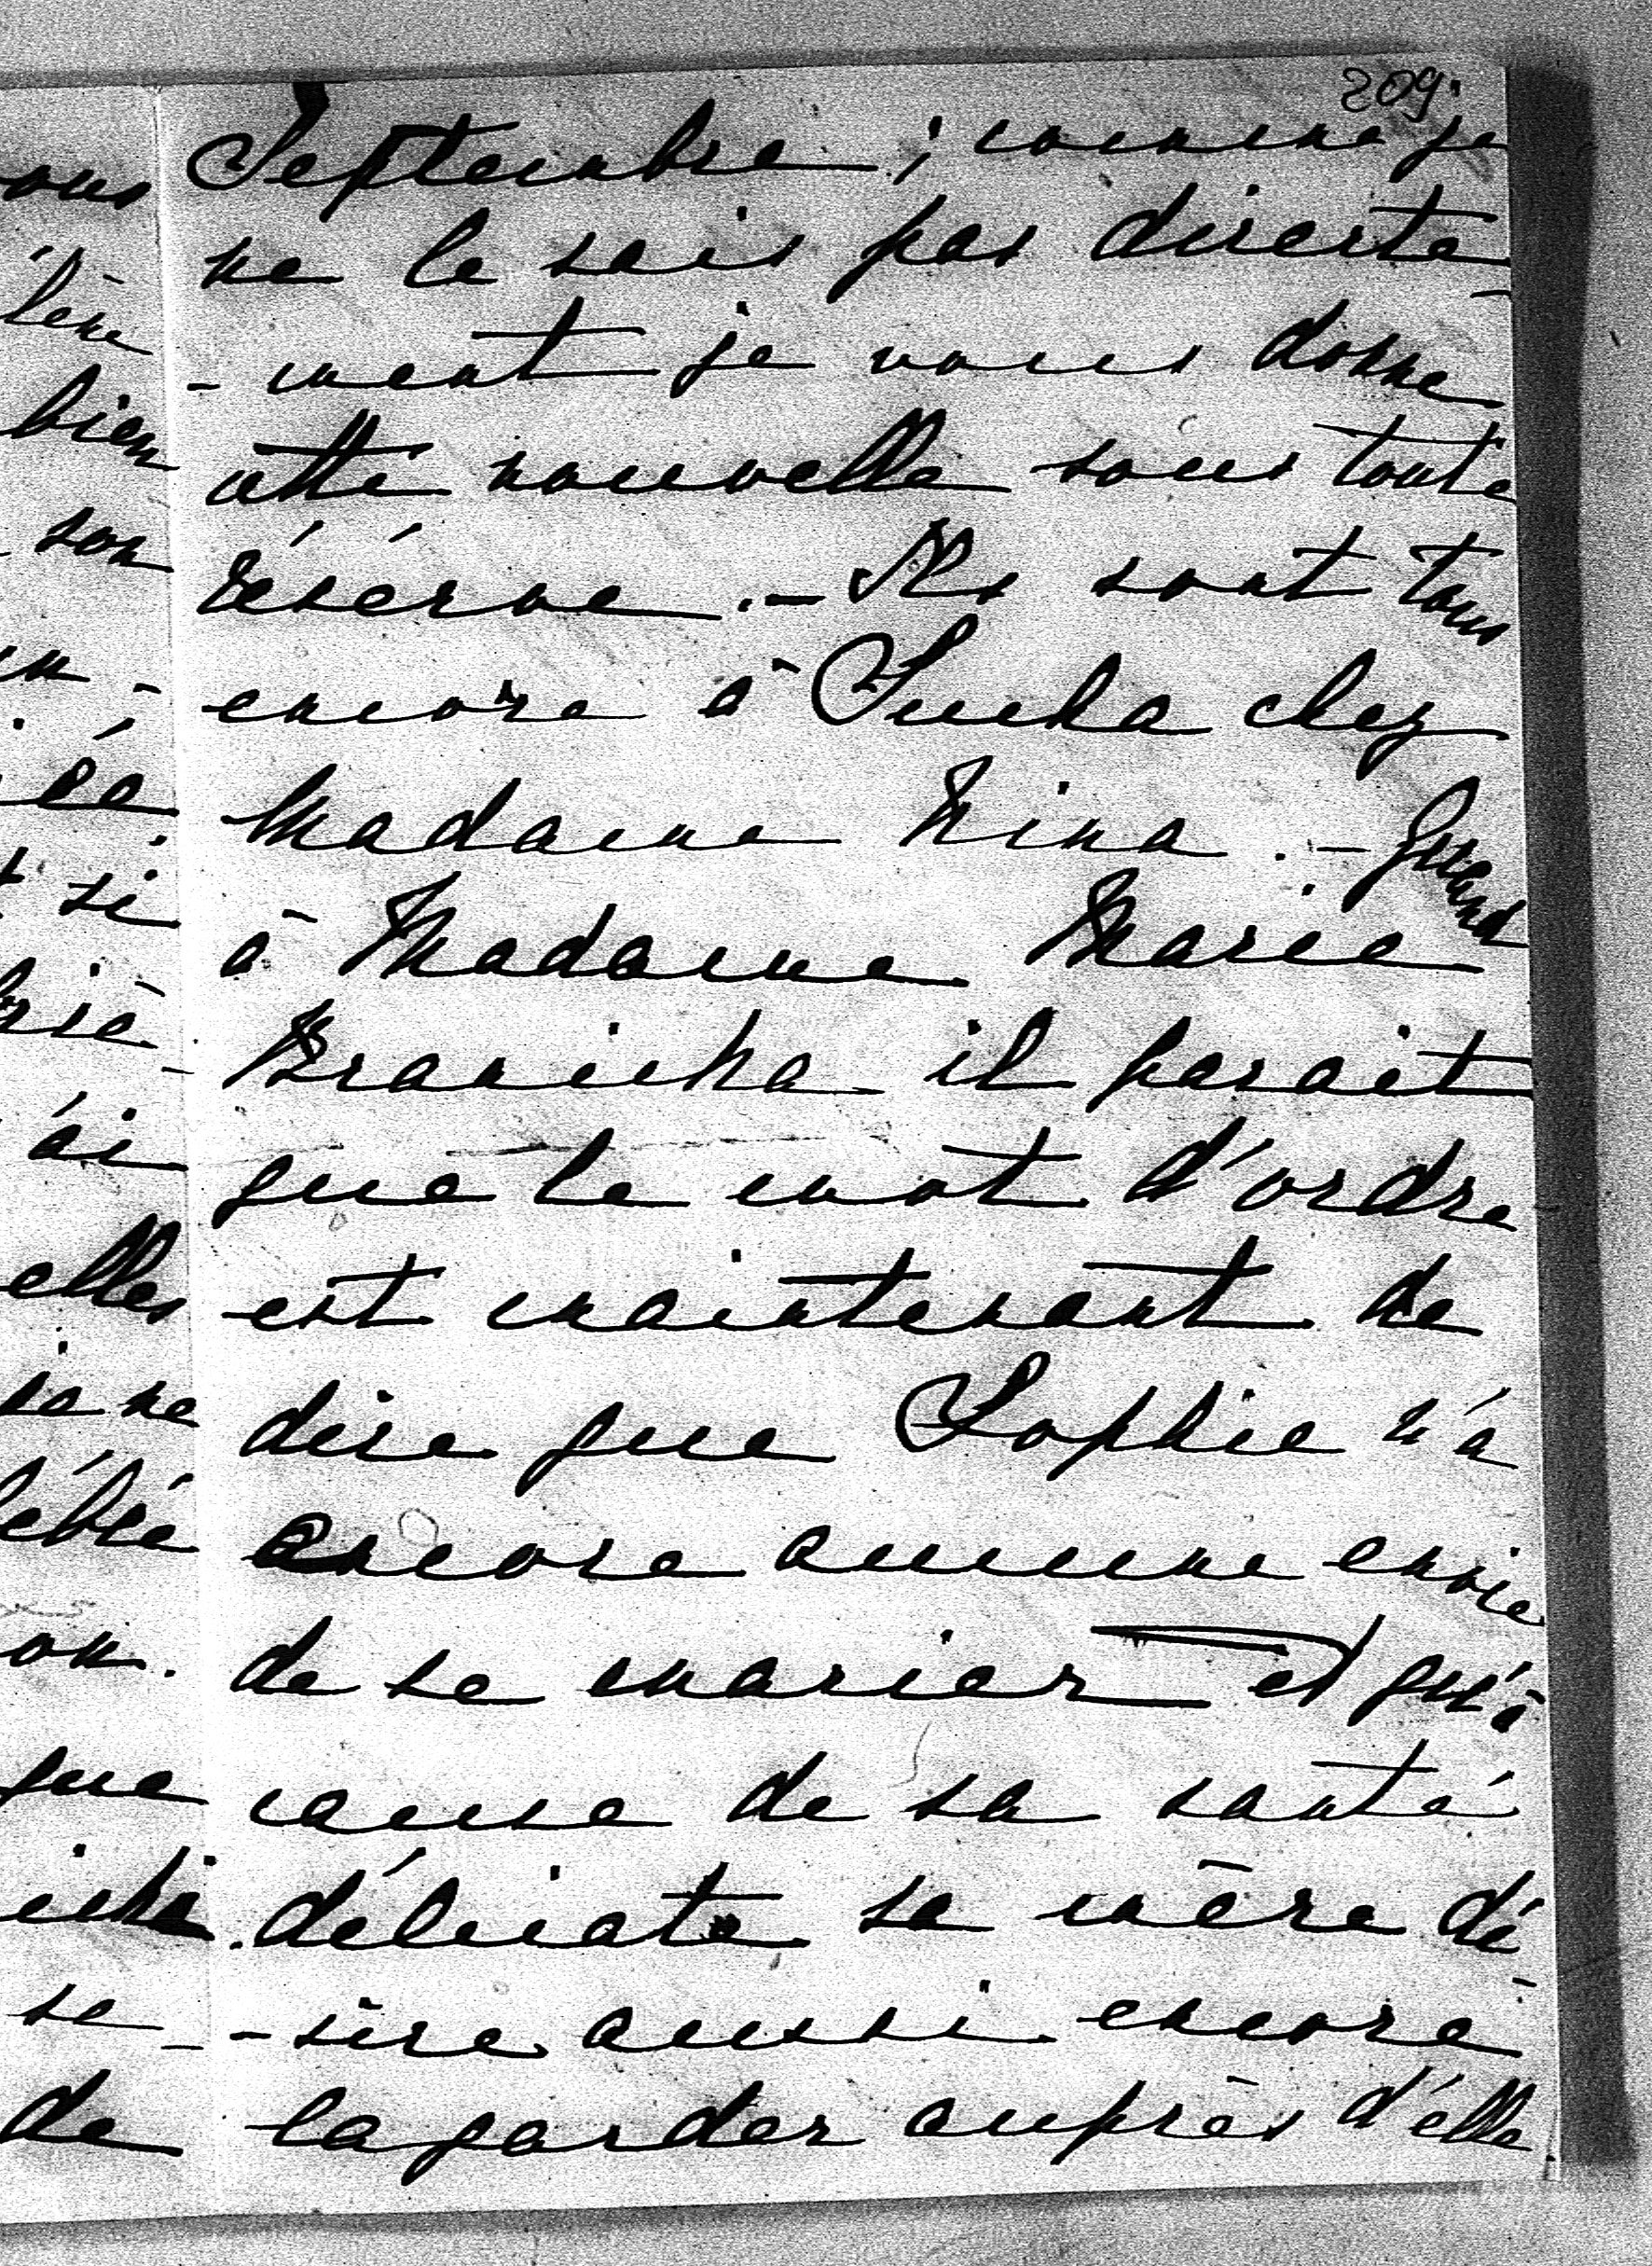 209.
Septembre ; comme je
ne le sais pas directe
- ment je vous donne
cette nouvelle sous toute
réserve. - Ils sont tous
encore à Sucha chez
Madame Nina. - Quand
à Madame Marie
Branicka il parait
que le mot d'ordre
est maintenant de
dire que Sophie n'a
encore aucune envie
de se marier et qu'à
cause de sa santé
délicate sa mère dé
- sire aussi encore
la garder auprès d'elle
ous
lène
bien
son
si
ai
elles
je ne
on.
que
icka
se
de